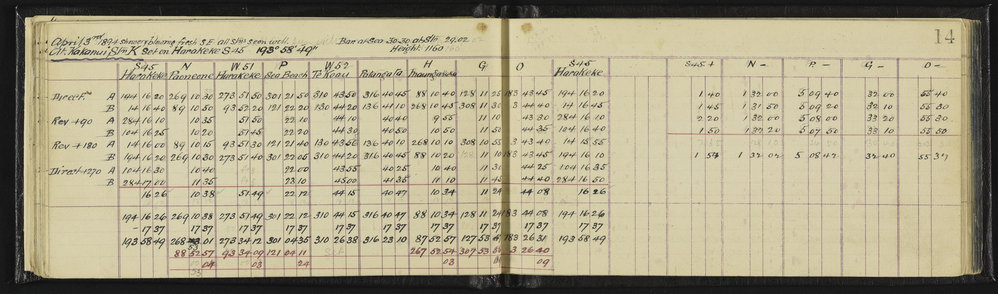 14
April 3rd 1894 showery blowing fresh S.E. all Stns seen well. Bar at Sea 30.30 at Stn 29.02
At Kakanui, Stn K Set on Harakeke S45 193° 58' 49" Height 1160
S45 N W51 P W52 H G O S45 S45+ N- P- G- O-
Harakeke Harakeke Sea Beach Te Koau Patangata Harakeke
Direct A 194 16 20 269 10 30 273 51 50 301 21 50 310 43 50 316 40 45 88 10 40 128 11 25 183 43 45 194 16 20 1 40 1 32 00 5 09 40 32 00 55 40
B 14 16 40 89 10 50 93 52 20 121 22 20 130 44 20 136 41 10 268 10 45 308 11 30 3 44 40 14 16 45 1 45 1 31 50 5 09 20 32 10 55 30
Rev +90 A 284 16 10 10 35 51 50 22 10 44 10 40 40 9 55 11 10 43 30 284 16 10 2 20 1 32 00 5 08 00 33 20 55 30
B 104 16 25 10 20 51 45 22 20 44 30 40 50 10 50 11 50 44 35 104 16 40 1 50 1 32 20 5 07 50 33 10 55 50
Rev +180 A 14 16 00 89 10 15 93 51 30 121 21 40 130 43 50 136 40 10 268 10 10 308 10 55 3 43 40 14 15 55
B 194 16 20 269 10 30 273 51 40 301 22 05 310 44 20 316 40 45 88 10 20 11 10 183 43 45 194 16 10 1 54 1 32 02 5 08 42 32 40 55 37
Direct 270 A 104 16 30 10 40 22 00 43 55 40 25 10 40 11 30 44 25 104 16 35
B 284 17 00 11 35 23 10 45 00 41 35 11 10 11 45 44 40 284 16 50
16 26 10 38 51 49 22 12 44 15 40 47 10 34 11 24 44 08 16 26
194 16 26 269 10 38 273 51 49 301 22 12 310 44 15 316 40 47 88 10 34 128 11 24 183 44 08 194 16 26
-17 37 17 37 17 37 17 37 17 37 17 37 17 37 17 37 17 37 17 37
193 58 49 268 53 01 273 34 12 301 04 35 310 26 38 316 23 10 87 52 57 127 53 47 183 26 31 193 58 49
88 52 57 93 34 09 121 04 11 267 52 54 307 53 3 26 40
04 03 24 03 09